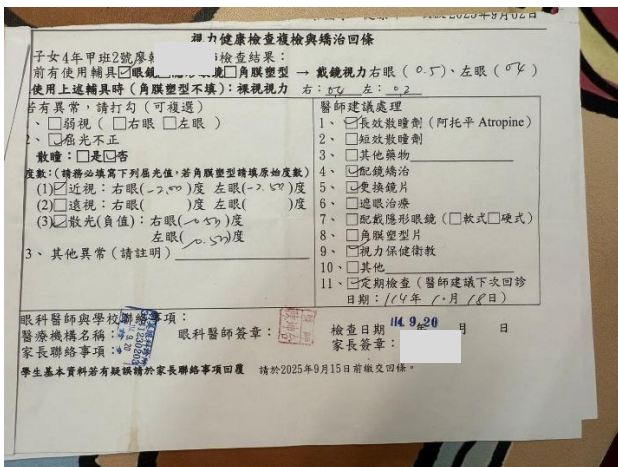 2025年9月02日
視力健康檢查複檢與矯治回條
子女4年甲班2號廖 檢查結果:
前有使用輔具☑眼鏡□隱形眼鏡□角膜塑型 → 戴鏡視力右眼(0.5)、左眼(0.4)
使用上述輔具時(角膜塑型不填):裸視視力 右: 左:0.2
若有異常,請打勾(可複選)
、□弱視(□右眼 □左眼)
、☑屈光不正
散瞳:□是☑否
度數:(請務必填寫下列屈光值,若角膜塑型請填原始度數)
(1)☑近視:右眼(-2.50)度 左眼(-2.50)度
(2)□遠視:右眼( )度 左眼( )度
(3)☑散光(負值):右眼(-0.50)度
左眼(-0.50)度
3、其他異常(請註明)
醫師建議處理
1、☑長效散瞳劑(阿托平 Atropine)
2、□短效散瞳劑
3、□其他藥物
4、☑配鏡矯治
5、☑更換鏡片
6、□遮眼治療
7、□配戴隱形眼鏡(□軟式□硬式)
8、□角膜塑型片
9、☑視力保健衛教
10、□其他
11、☑定期檢查(醫師建議下次回診
日期:114年 月18日)
眼科醫師與學校聯絡事項:
醫療機構名稱: 眼科醫師簽章: 檢查日期 114.9.20 年 月 日
家長聯絡事項: 家長簽章:
學生基本資料若有疑誤請於家長聯絡事項回覆 請於2025年9月15日前繳交回條。